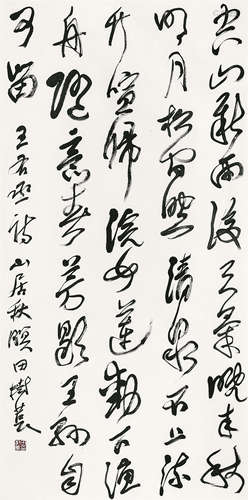 空山新雨後天氣晚來秋
明月松間照清泉石上流
竹喧歸浣女蓮動下漁
舟隨意春芳歇王孫自
可留 王右丞詩 山居秋暝 田樹萇